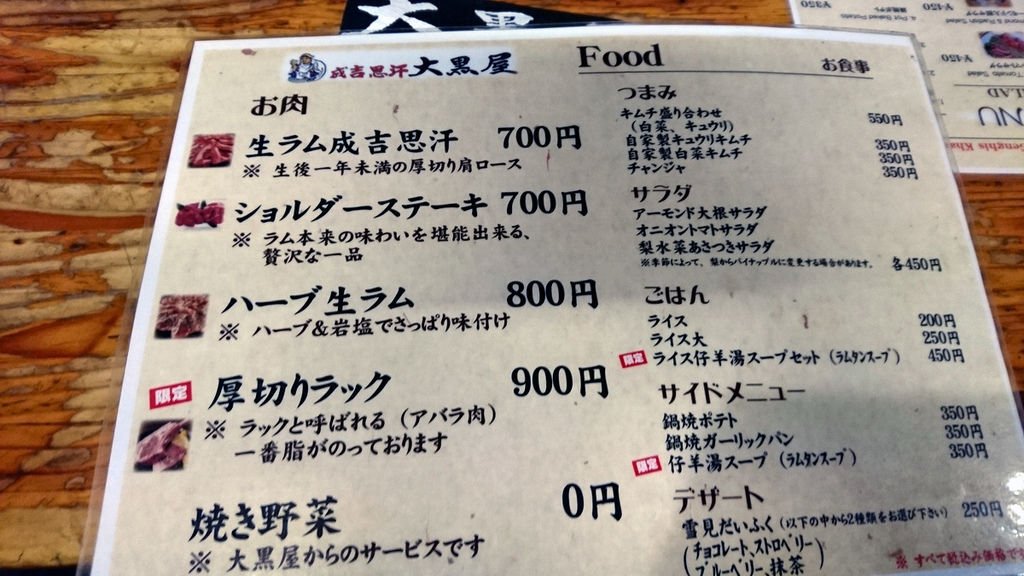 大黒
成吉思汗 大黒屋
Food
お食事
お肉
生ラム成吉思汗 700円
※ 生後一年未満の厚切り肩ロース
ショルダーステーキ 700円
※ ラム本来の味わいを堪能出来る、
贅沢な一品
ハーブ生ラム 800円
※ ハーブ&岩塩でさっぱり味付け
限定 厚切りラック 900円
※ ラックと呼ばれる(アバラ肉)
一番脂がのっております
焼き野菜 0円
※ 大黒屋からのサービスです
つまみ
キムチ盛り合わせ 550円
(白菜、キュウリ)
自家製キュウリキムチ 350円
自家製白菜キムチ 350円
チャンジャ 350円
サラダ
アーモンド大根サラダ
オニオントマトサラダ
梨水菜あさつきサラダ
※季節によって、梨からパイナップルに変更する場合があります。 各450円
ごはん
ライス 200円
ライス大 250円
限定 ライス仔羊湯スープセット(ラムタンスープ) 450円
サイドメニュー
鍋焼ポテト 350円
鍋焼ガーリックパン 350円
限定 仔羊湯スープ(ラムタンスープ) 350円
デザート
雪見だいふく(以下の中から2種類をお選び下さい) 250円
(チョコレート、ストロベリー
ブルーベリー、抹茶)
※ すべて税込み価格です
¥350
¥420
¥420
Tomato Salad
NU
Genghis Kha